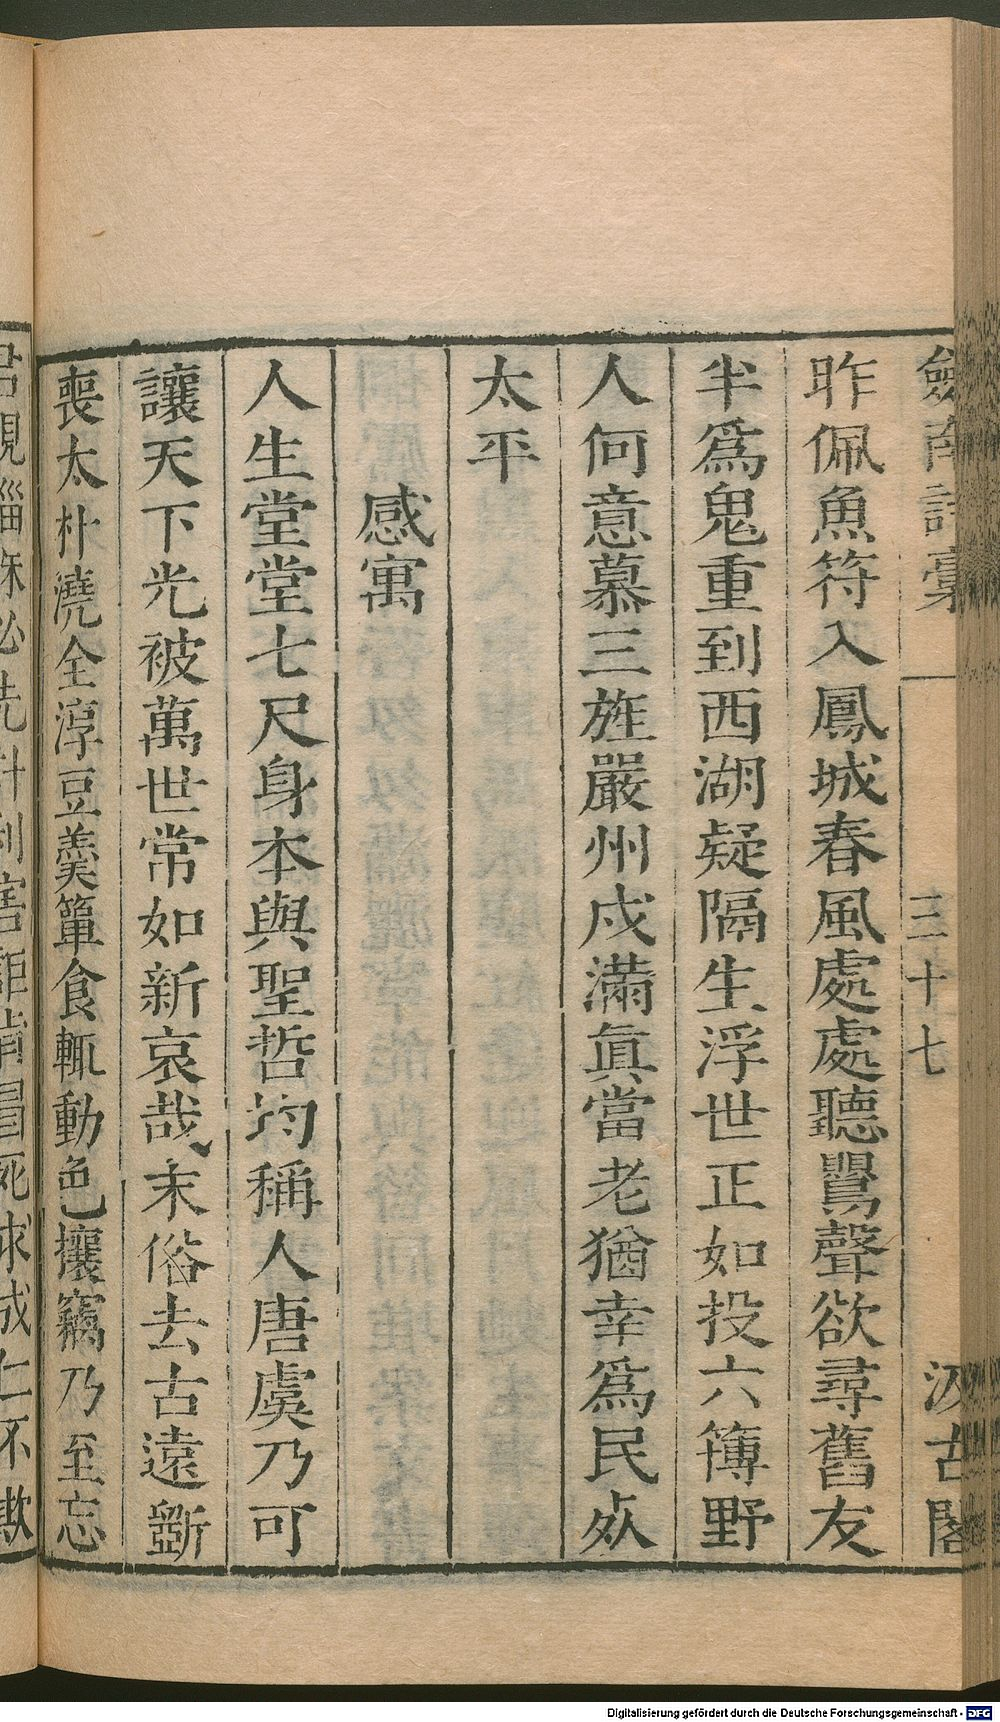 劒南詩稾
三十七
汲古閣
昨佩魚符入鳳城春風處處聽鸎聲欲尋舊友
半爲鬼重到西湖疑隔生浮世正如投六簙野
人何意慕三旌嚴州戍滿眞當老猶幸爲民㸃
太平
感寓
人生堂堂七尺身本與聖哲均稱人唐虞乃可
讓天下光被萬世常如新哀哉末俗去古遠斵
喪太朴澆全淳豆羹簞食輒動色攘竊乃至忘
Digitalisierung gefördert durch die Deutsche Forschungsgemeinschaft - DFG